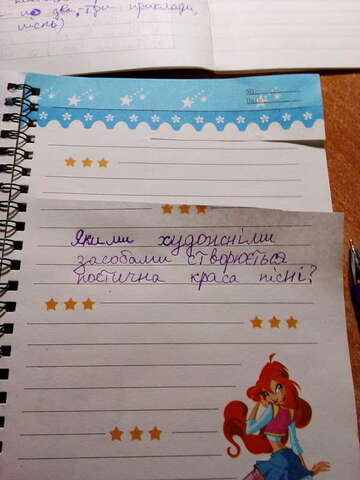 по два, три приклади,
піснь)
No:
Date:
Якими художніми
засобами створюється
поетична краса пісні?